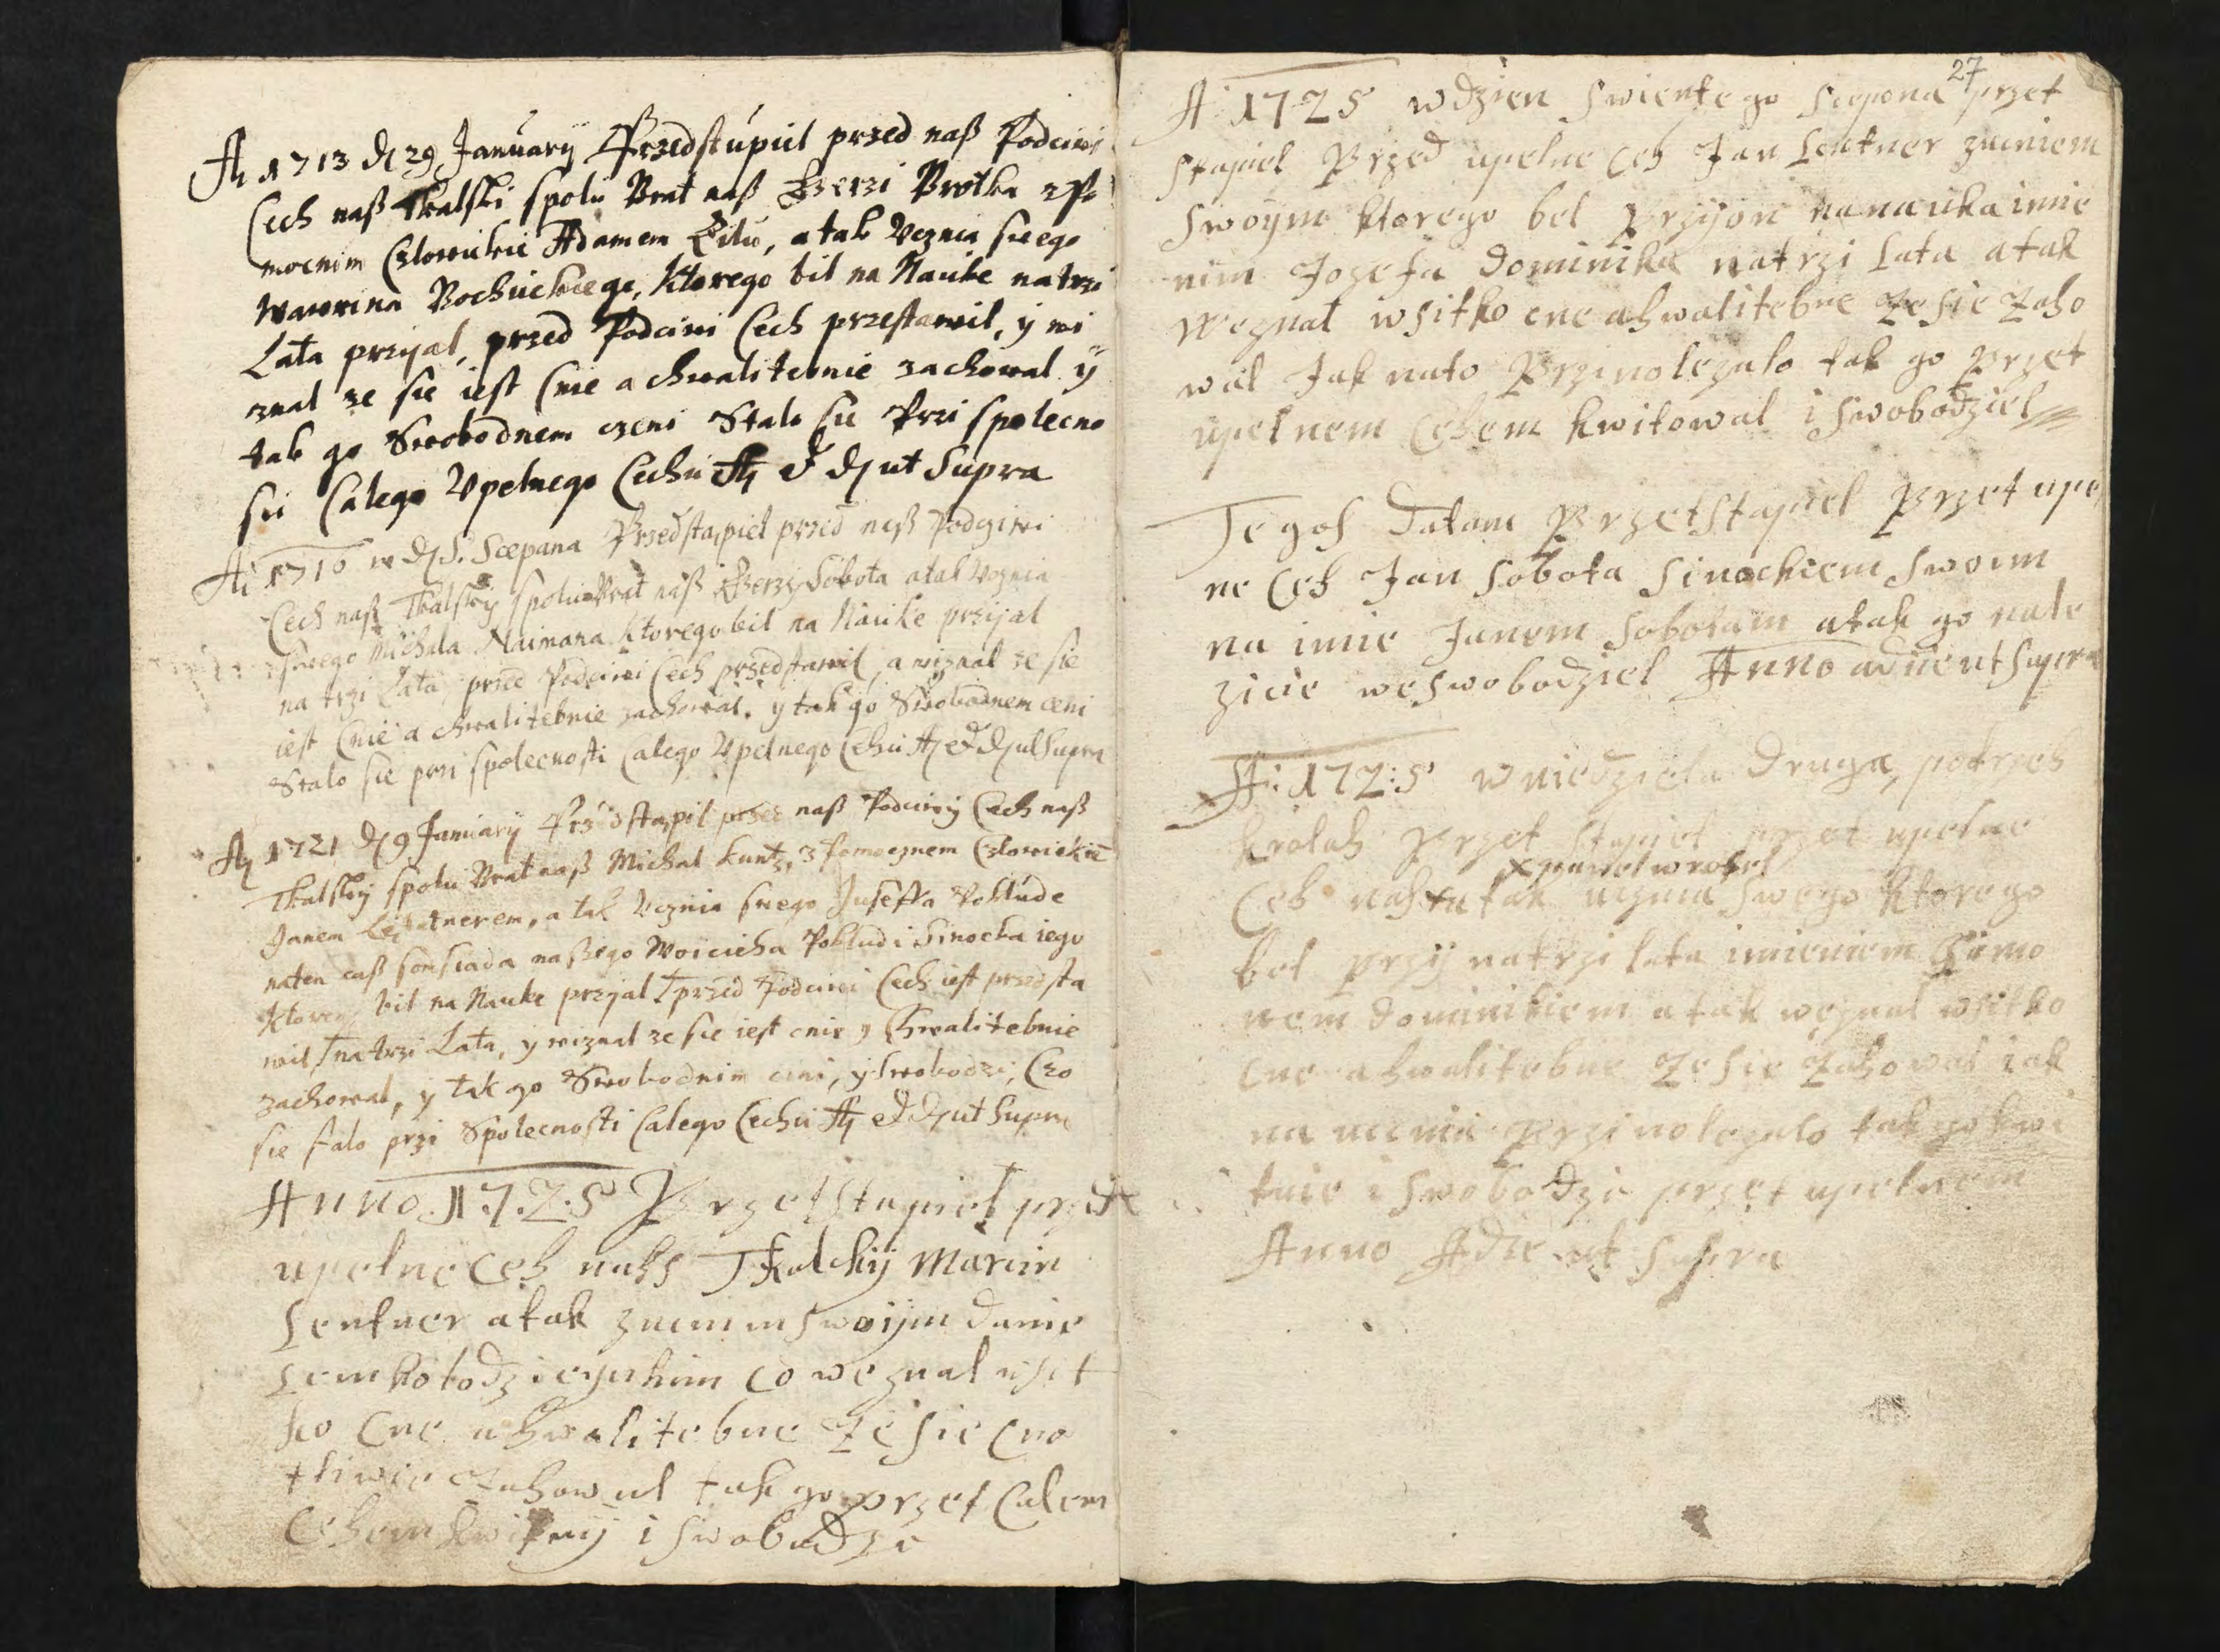 Aō 1713 d 29 January Przedstupiel przed naß Podciwi
Cech naß Tkalski spolu Brat naß Gerzi Brotka z Po
mocnem Czlowiekie Adamem Zilu, a tak Vcznia swego
Wawrina Bochnickiego, Ktorego bil na Nauke na trzi
Lata przyjal, przed Podciwi Cech przestawil, y wi
znal ze sie iest Cnie a chwalitebnie zachowal y
tak go Swobodnem czeni Stalo sie Przi spolecno
sci Calego Vpelnego Cechu A et D ut Supra
Aō 1716 w D S. Scepana Przedstąpiel przed naß Podciwi
Cech naß Tkalsky spolu Brat naß Gerzy Sobota a tak Vcznia
swego Michala Naimana Ktorego bil na Nauke przijal
na trzi Lata, przed Podciwi Cech przedstawil, a wiznal ze sie
iest Cnie a chwalitebnie zachowal. y tak go Swobodnem ceni
Stalo sie przi spolecnosti Calego Vpelnego Cehu A et D ut Supra
Aō 1721 d 9 January Przedstąpil przed naß Podciwy Cech naß
Tkalsky spolu Brat naß Michal Kuntz, z Pomocznem Czlowiekie
Janem Leitnerem, a tak Vcznia swego Juseffa Poklude
naten caß somsiada naßego Woiciecha Pokludi Sinocka iego
Ktorego bil na Nauke przyjal † przed Podciwi Cech iest przedsta
wil † na trzi Lata, y wiznal ze sie iest cnie y Chwalitebnie
zachowal, y tak go Swobodnim cini, y Swobodzi, Czo
sie stalo przi Spolecnosti Calego Cechu A et D ut Supra
Anno. 1.7.2.5 Przetstapiel przet
upelne Ceh nahs Tkalchij Marcin
Lentner a tak zuciniem swoijm danie
lem kolodzieyskim co weznal wsit
ko Cne ahwalitebne ze sie Cno
tliwie zahowal tak go przet Calem
Cehem kwituij i swobodzi
27
A 1725 w dzien swientego sczepona przet
stapiel Przed upelne Ceh Jan Lentner zuciniem
swoym ktorego bel Przyjon na nauka imie
nim Jozefa dominika na trzi Lata a tak
weznal wsitko cne ahwalitebne ze sie zaho
wal Jak nato Przinolezalo tak go Przet
upelnem Cehem kwitowal i swobodziel
Tegos datam Przetstapiel Przet upel
ne Ceh Jan Sobota Sinockiem Swoim
na imie Janem Sobotam a tak go nale
zicie weswobodziel Anno adiie ut Supra
A: 172:5 w niedziela druga potrzeh
krolah Przet stapiel przet upelne
x pawel wrobel
Ceh nahs x a tak ucznia swego ktorego
bel przij na trzi lata imieniem Szimo
nem dominikiem a tak weznal wsitko
cne ahwalitebne ze sie zahowal iak
na ucznia Przinolezalo tak go kwi
tuie i swobodzi przet upelnem
Anno Adie ut Supra